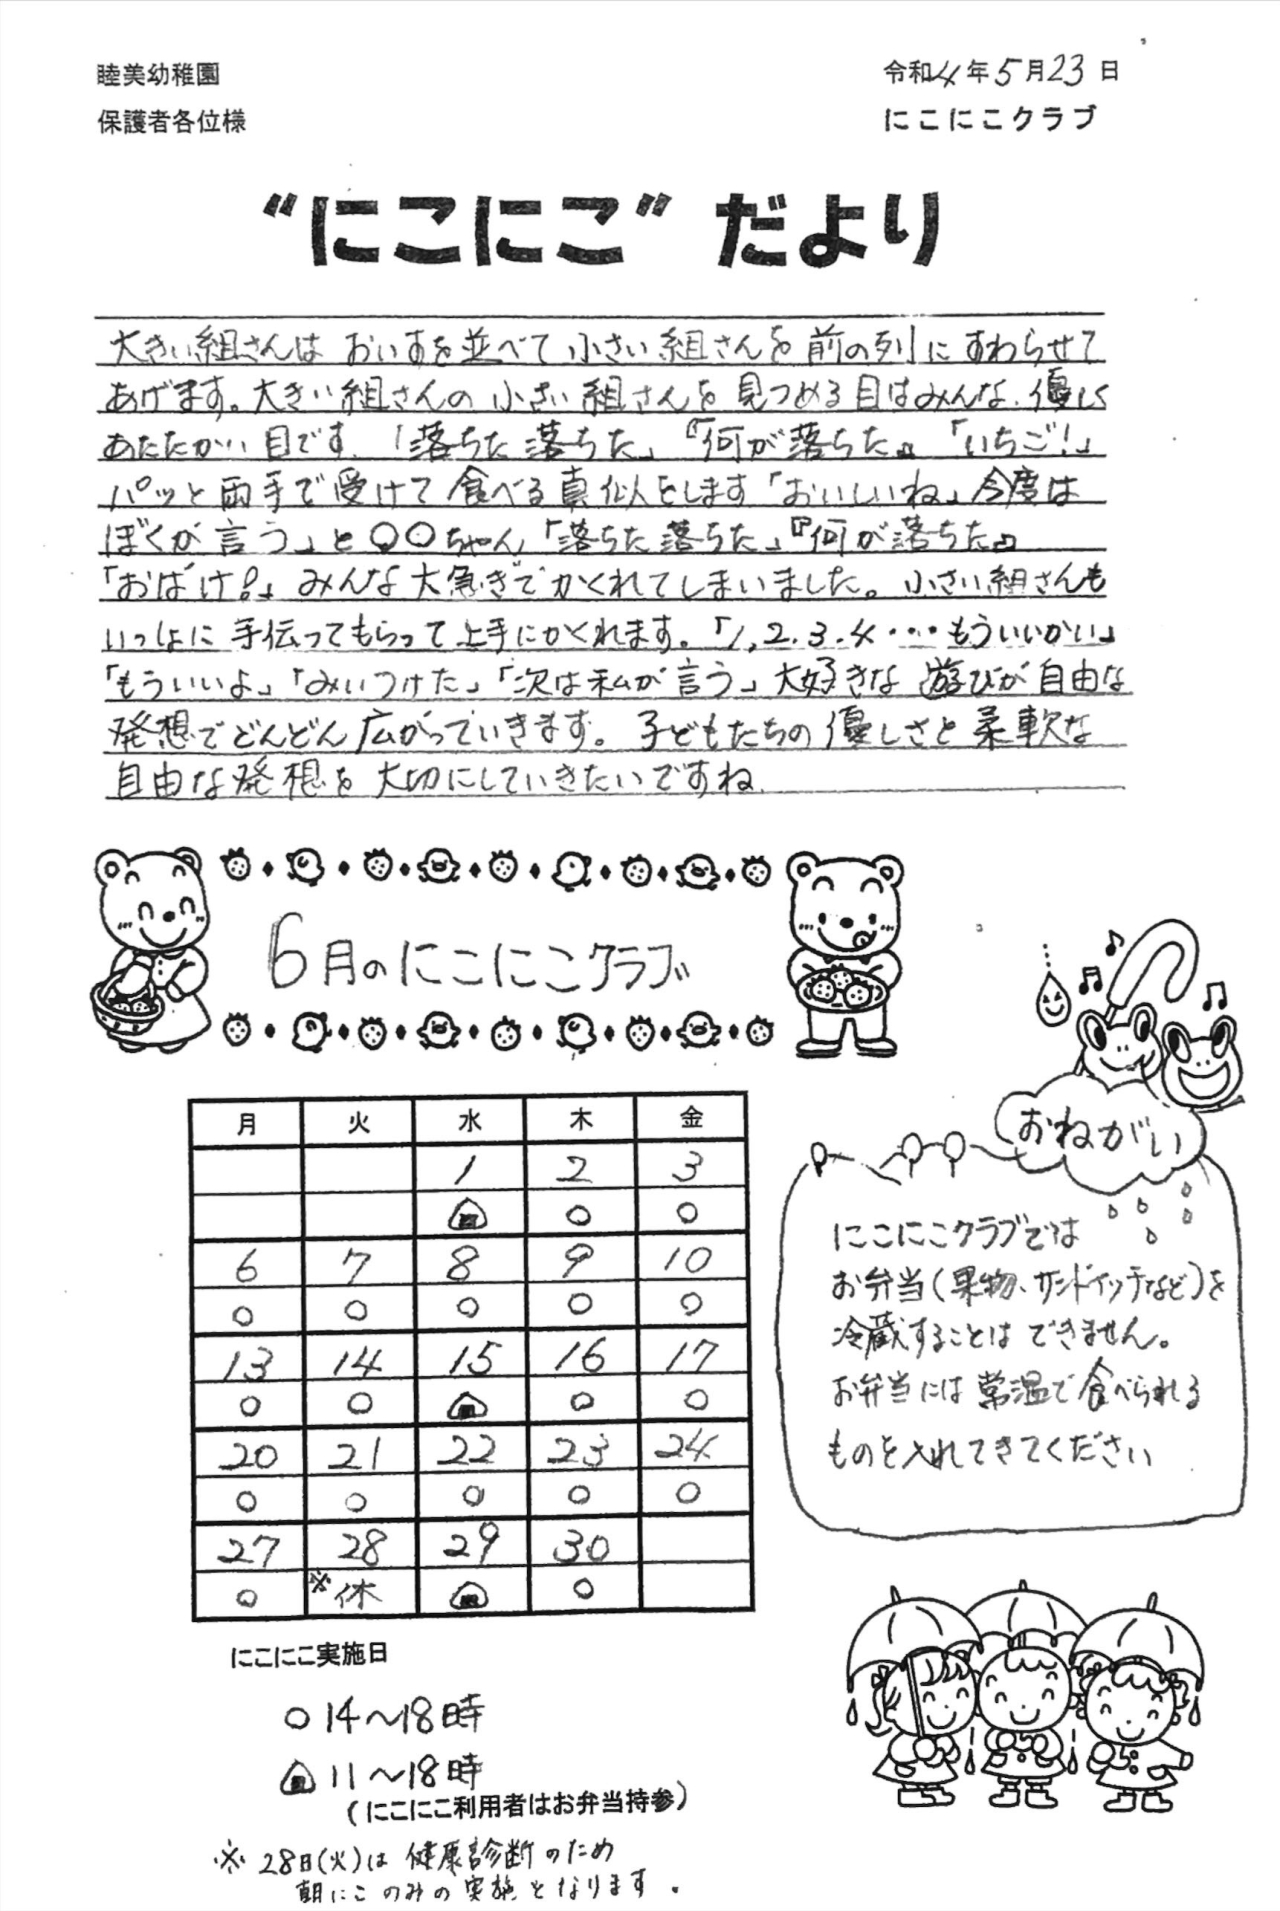 睦美幼稚園
保護者各位様
令和4年5月23日
にこにこクラブ
“にこにこ”だより
大きい組さんは おいすを並べて 小さい組さんを 前の列に すわらせて
あげます。大きい組さんの 小さい組さんを 見つめる目はみんな 優しく
あたたかい 目です 「落ちた 落ちた」『何が落ちた』「いちご!」
パッと両手で受けて 食べる真似をします「おいしいね」今度は
ぼくが言う」と 〇〇ちゃん「落ちた 落ちた」『何が落ちた』
「おばけ!」 みんな大急ぎでかくれてしまいました。小さい組さんも
いっしょに 手伝ってもらって上手にかくれます。「1,2.3.4・・・もういいかい」
「もういいよ」「みいつけた」「次は私が言う」大好きな 遊びが自由な
発想でどんどん広がっていきます。子どもたちの 優しさと 柔軟な
自由な発想を 大切にしていきたいですね
6月のにこにこクラブ
月 火 水 木 金
1 2 3
○ ○
6 7 8 9 10
○ ○ ○ ○ ○
13 14 15 16 17
○ ○ ○ ○
20 21 22 23 24
○ ○ ○ ○ ○
27 28 29 30
○ ※休 ○
おねがい
にこにこクラブでは
お弁当(果物、サンドイッチなど)を
冷蔵することは できません。
お弁当には 常温で食べられる
ものを入れてきてください
にこにこ実施日
○ 14〜18時
11〜18時
(にこにこ利用者はお弁当持参)
※ 28日(火)は 健康診断のため
朝にこのみの実施となります。